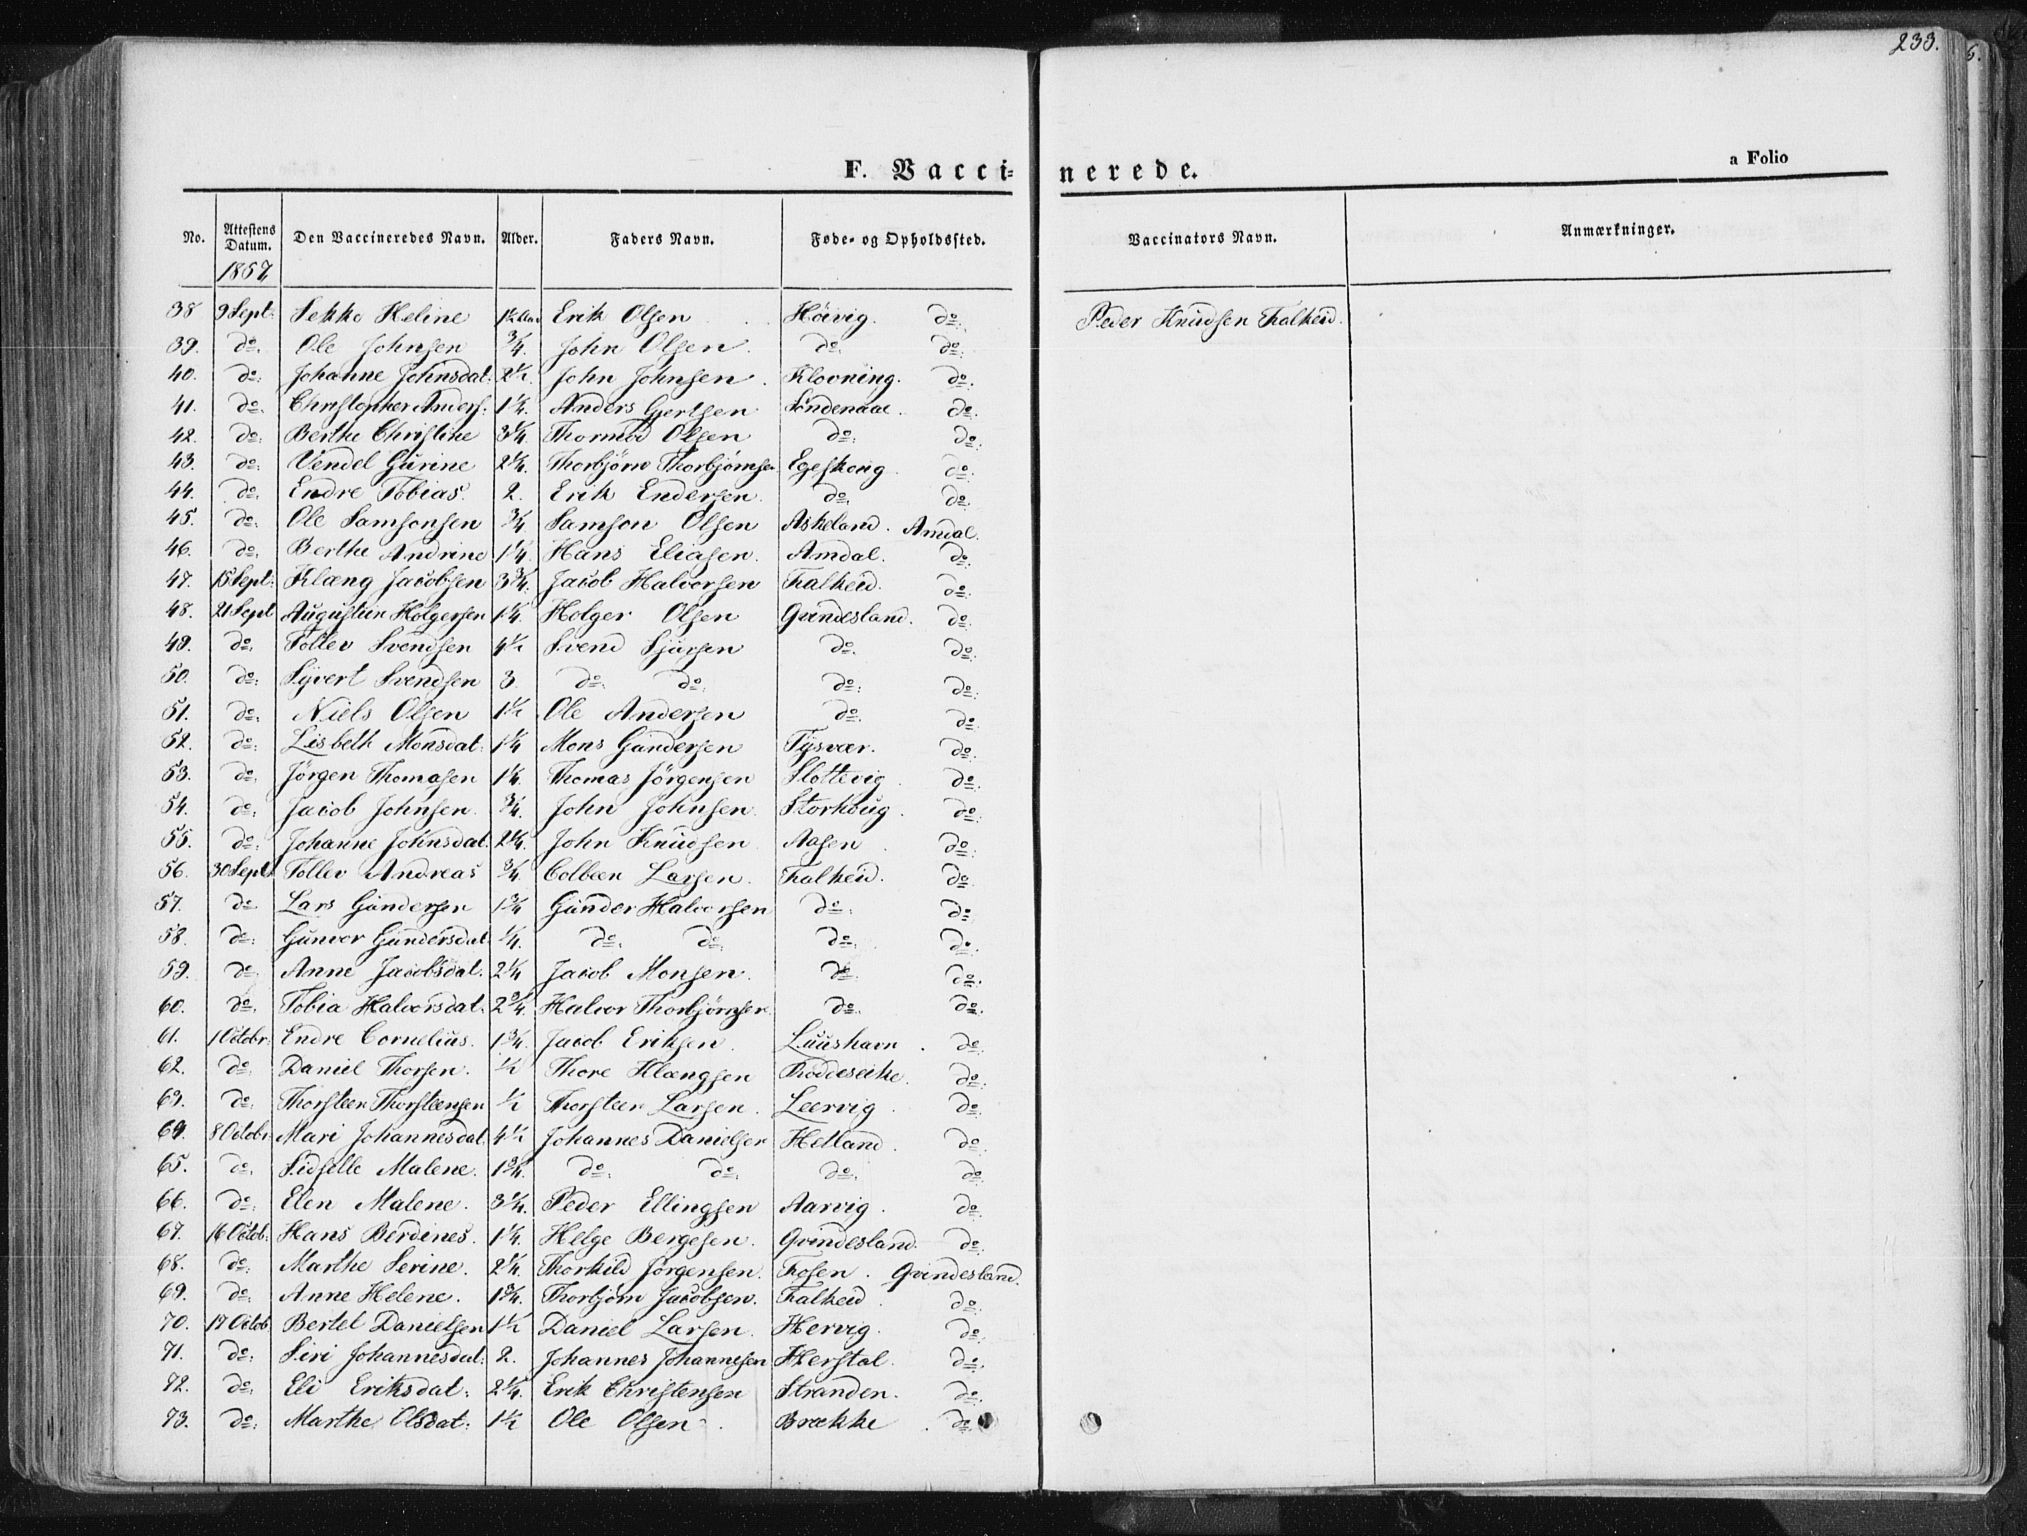 233.
F. Vacci-nerede.
a Folio
No. Attestens Datum. Den Vaccineredes Navn. Alder. Faders Navn. Føde- og Opholdssted. Vaccinators Navn. Anmærkninger.
1857
38 9 Sept: Sekke Heline 1½ Aar Erik Olsen Höivig. do: Peder Knudsen Falkeid.
39. do: Ole Johnsen ¾. John Olsen. do: do:
40. do: Johanne Johnsdat. 2½. John Johnsen. Klovning. do.
41. do: Christopher Anders. 1¼. Anders Gjertsen do.
42. do: Berthe Christine 3¼ Thormod Olsen do: do.
43. do: Vendel Gurine 2¼. Thorbjörn Thorbjörnsen Egeskoug do:
44. do: Endre Tobias. 2. Erik Endersen. do. do.
45. do: Ole Samsonsen ¾ Samson Olsen Askeland. Amdal.
46. do: Berthe Andrine 1¼ Hans Eliasen. Amdal. do:
47. 15 Sept: Klæng Jacobsen 3¾. Jacob Halvorsen Falkeid. do:
48. 21 Sept Augustun Holgersen 1¼. Holger Olsen Qvindesland. do.
49. do: Tollev Svendsen 4½ Svend do. do:
50. do: Syvert Svendsen 3. do: do: do: do:
51. do: Niels Olsen 1½ Ole Andersen do: do:
52. do: Lisbeth Monsdat: 1¼ Mons Gundersen Tysvær. do:
53. do: Jörgen Thomasen 1¼. Thomas Jörgensen Slottevig. do:
54. do: Jacob Johnsen. ¾. John Johnsen. Storhoug. do:
55. do: Johanne Johnsdat. 2¼. John Knudsen Aasen. do:
56. 30 Sept Tollev Andreas ¾. Colbeen Larsen. Falkeid. do.
57. do Lars Gundersen 1¾ Gunder Halvorsen do: do:
58. do: Gunvor Gundersdat. ¼. do: do: do: do:
59. do: Anne Jacobsdat. 2¼ Jacob Monsen. do. do.
60. do: Tobia Halvorsdat. 2¾. Halvor Thorbjörnsen do. do.
61. 1 Octobr: Endre Cornelius. 1¾. Jacob Eriksen. Luushavn. do:
62. do: Daniel Thorsen. ½ Thore Klængsen Röddeseike. do:
63. do: Thorsteen Thorsteensen ½ Thorsteen Larsen. Leervig. do:
64. 8 Octobr Mari Johannesdat. 4½ Johannes Danielsen Hetland. do:
65. do: Sidselle Malene. 1¾. do: do: do: do:
66. do: Elen Malene. 3¼. Peder Ellingsen Aarvig. do.
67. 16 Octob: Hans Berdines. 1¼. Helge Bergesen. Qvindesland. do:
68. do: Marthe Serine. 2¼. Thorkild Jörgensen. Fosen. Qvindesland.
69. do: Anne Helene. 1¾. Thorbjörn Jacobsen. Falkeid. do:
70. 17 Octob Bertel Danielsen 1½ Daniel Larsen. Hervig. do:
71. do: Siri Johannesdat: 2. Johannes Johannesen Herstøl. do:
72. do: Eli Eriksdat: 2¼. Erik Christensen Stranden. do:
73. do: Marthe Olsdat: 1½ Ole Olsen Brække. do: